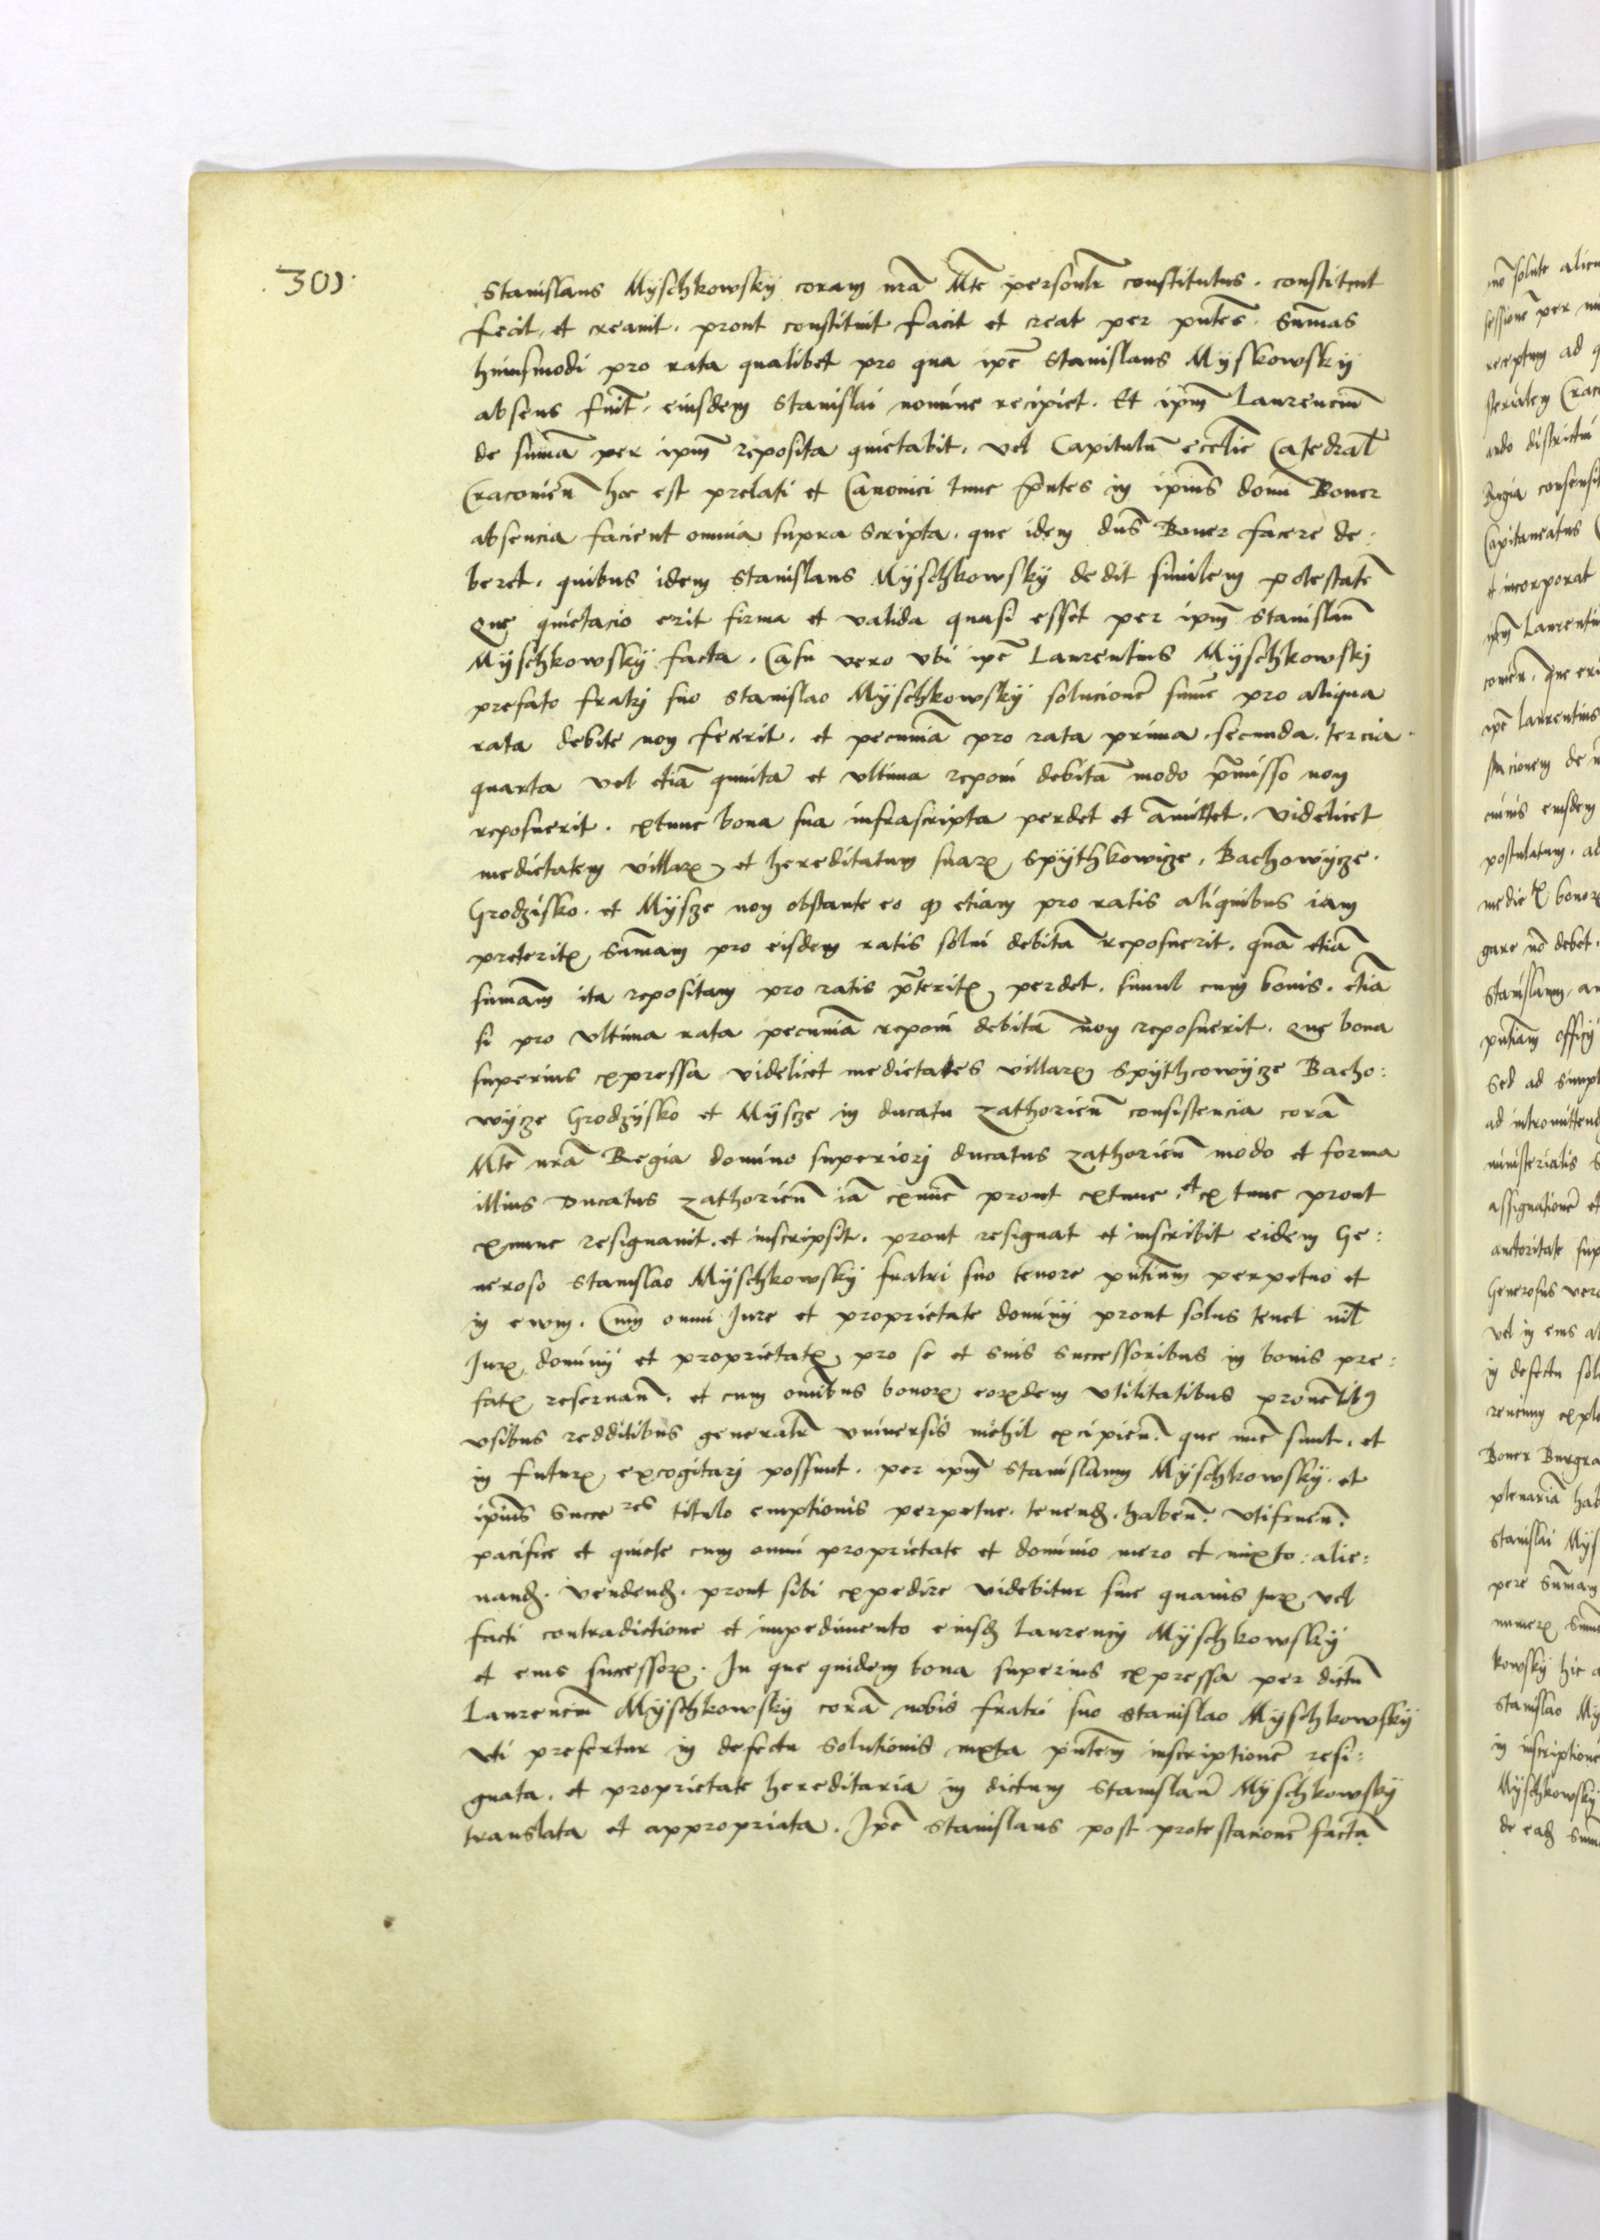 309.
Stanislaus Myschkowsky coram nrã Mte personlr constitutus. constituit
fecit. et creauit. prout constituit facit et creat per pntes. Sum̃as
huiusmodi pro rata qualibet pro qua ipẽ Stanislaus Myskowsky
absens fuit. eiusdem Stanislai nomine recipiet. Et ipm̃ Laurenciũ
de sum̃a per ipm̃ reposita quietabit. vel Capitulũ ecclie Catedral
Cracouieñ hoc est prelati et Canonici tunc p̃ntes in ipius domi Boner
absencia facient omnia supra scripta. que idem dñs Boner facere de:
beret. quibus idem Stanislaus Myschkowsky dedit similem ptestatẽ
Que quietacio erit firma et valida quasi esset per ipm̃ Stanislaũ
Myschkowsky facta. Casu vero vbi ipẽ Laurentius Myschkowsky
prefato fratri suo Stanislao Myschkowsky solucionẽ sum̃e pro aliqua
rata debite non fecerit. et pecuniã pro rata prima. secunda. tercia.
quarta vel etiã quinta et vltima reponi debitã modo p̃misso non
reposuerit. extunc bona sua infrascripta perdet et amittet. Videlicet
medietatem villarꝝ et hereditatum suarꝝ Spythkowicze. Bachowycze.
Grodzisko. et Mysze non obstante eo ꝙ etiam pro ratis aliquibus iam
preteritꝭ Sum̃am pro eisdem ratis solui debitã reposuerit. quã etiã
sum̃am ita repositam pro ratis p̃teritꝭ perdet. simul cum bonis. etiã
si pro vltima rata pecuniã reponi debitã non reposuerit. Que bona
superius expressa videlicet medietates villarꝝ Spythcowycze Bacho:
wycze Grodzysko et Mysze in ducatu Zathorieñ consistencia corã
Mte nrã Regia domino superiori ducatus Zathorieñ modo et forma
illius Ducatus Zathorieñ iã exnũc prout extunc. et ex tunc prout
exnunc resignauit. et inscripsit. prout resignat et inscribit eidem Ge:
neroso Stanislao Myschkowsky fratri suo tenore pntium perpetuo et
in ewm. Cum omni Jure et proprietate dominij prout solus tenet nil
Jurꝭ dominij et proprietatꝭ pro se et suis Successoribus in bonis pre:
fatꝭ reseruañ. et cum omibus bonorꝝ eorꝝdem vtilitatibus prouẽtibꝰ
vsibus redditibus generalr vniuersis nichil excipieñ. que nũc sunt. et
in futurꝝ excogitari possunt. per ipm̃ Stanislaum Myschkowsky. et
ipius Succeres titulo emptionis perpetue. tenendꝭ. habeñ. vtifrueñ.
pacifice et quiete cum omni proprietate et dominio mero et mixto. alie:
nandꝭ. vendendꝭ. prout sibi expedire videbitur sine quauis Jurꝭ vel
facti contradictione et impedimento eiusdꝭ Laurencij Myschkowsky
et eius successorꝝ. In que quidem bona superius expressa per dictũ
Laurenciũ Myschkowsky corã nobis fratri suo Stanislao Myschkowsky
vti prefertur in defectu Solutionis iuxta pntem inscriptionẽ resi:
gnata. et proprietate hereditaria in dictum Stanislaũ Myschkowsky
translata et appropriata. Ipẽ Stanislaus post protestacionẽ factã